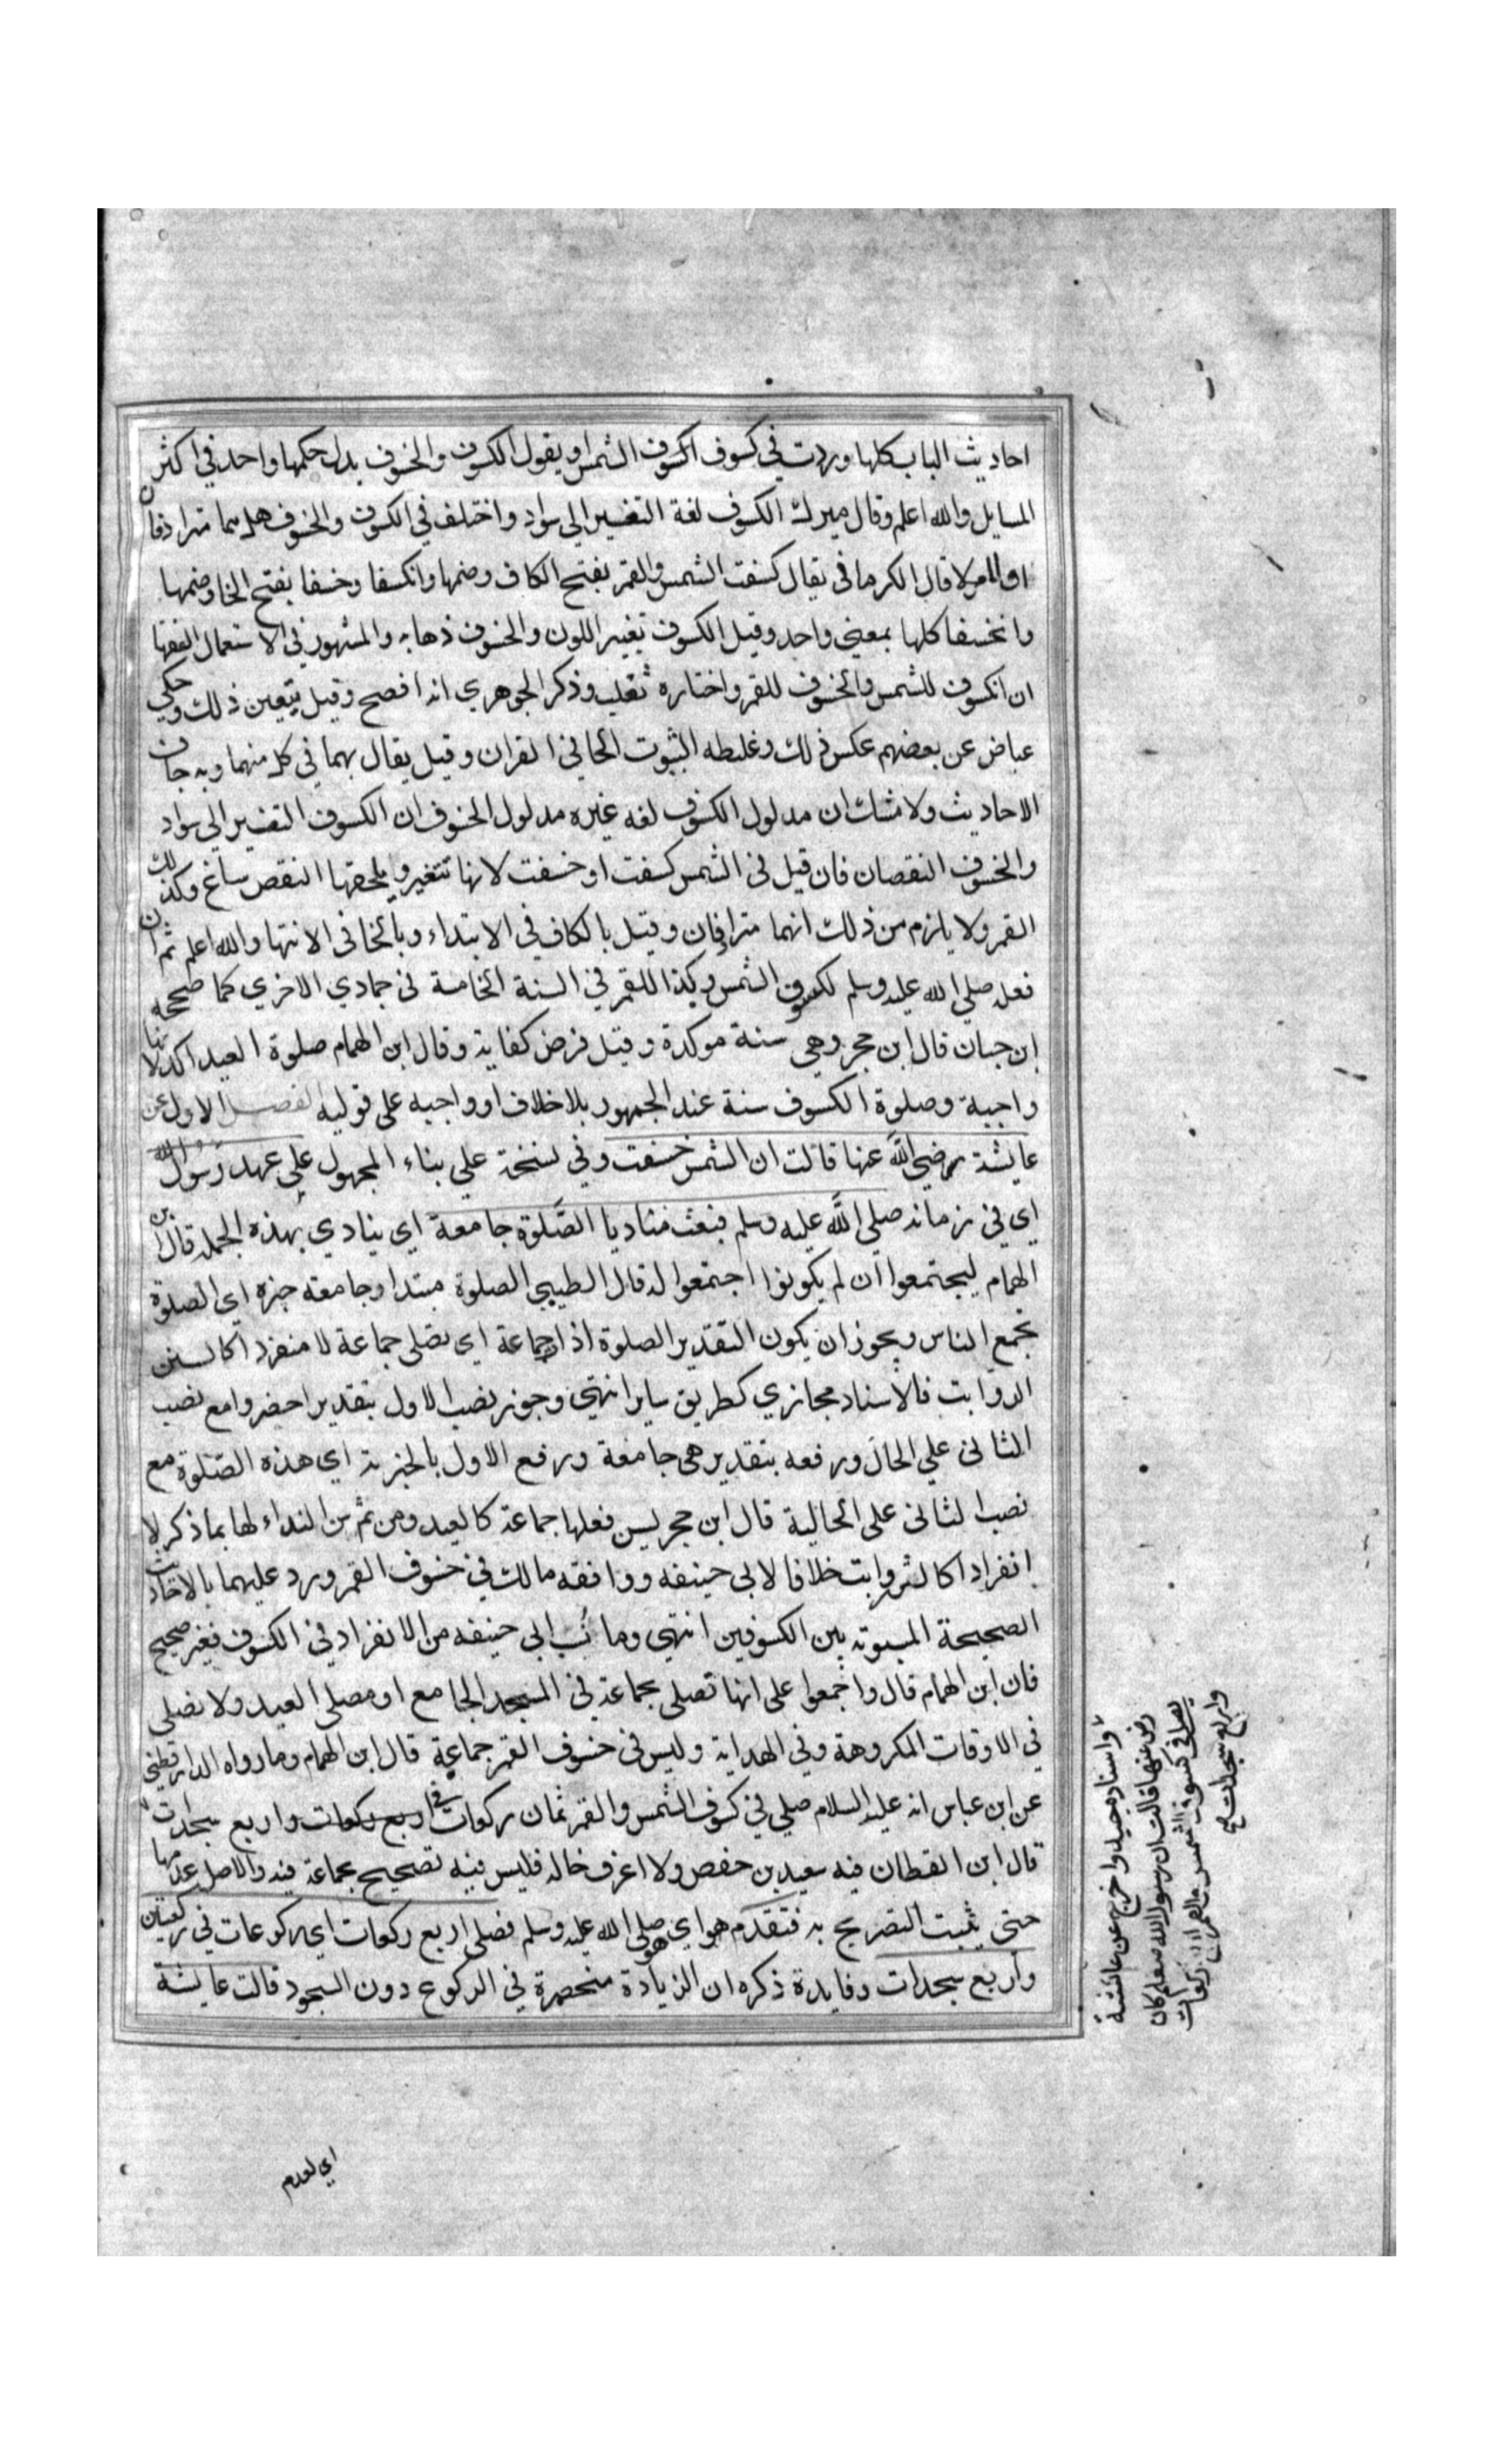 احاديث الباب كلها وردت في كسوف الكسوف الشمس او يقول الكسوف والخسوف بدل حكمها واحد في اكثر
المسايل والله اعلم وقال ميرك الكسوف لغة التغيير الي سواد واختلف في الكسوف والخسوف هل هما مترادفان
او لا قال الكرماني يقال كسفت الشمس والقمر بفتح الكاف وضمها وانكسفا وخسفا بفتح الخا وضمها
وانخسفا كلها بمعني واحد وقيل الكسوف تغيير اللون والخسوف ذهابه والمشهور في الاستعمال الفقها
ان الكسوف للشمس والخسوف للقمر واختاره ثعلب وذكر الجوهري انه افصح وقيل يتعين ذلك وحكي
عياض عن بعضهم عكس ذلك وغلطه الثبوت الخا في القران وقيل يقال بهما في كل منهما وبه جات
الاحاديث ولا شك ان مدلول الكسوف لغه غيره مدلول الخسوف ان الكسوف التغيير الي سواد
والخسوف النقصان فان قيل في الشمس كسفت او خسفت لانها تتغير ويلحقها النقص ساغ وكذلك
القمر ولا يلزم من ذلك انهما مترادفان وقيل بالكاف في الابتداء وبالخا في الانتها والله اعلم ثم ان
فعله صلي الله عليه وسلم لكسوف الشمس وكذا للقمر في السنة الخامسة في جمادي الاخري كما صححه
ابن حبان قال ابن حجر وهي سنة موكدة وقيل فرض كفاية وقال ابن الهمام صلوة العيد اكد لانها
واجبية وصلوة الكسوف سنة عند الجمهور بلا خلاف او واجبه علي قوليه الفصل الاول عن
عايشة رضي الله عنها قالت ان الشمس خسفت وفي نسخة علي بناء المجهول علي عهد رسول الله
اي في زمانه صلي الله عليه وسلم فبعث مناديا الصلوة جامعة اي ينادي بهذه الجمله قال ابن
الهمام ليجتمعوا ان لم يكونوا اجتمعوا له قال الطيبي الصلوة مبتدا وجامعة خبره اي الصلوة
تجمع الناس ويجوز ان يكون التقدير الصلوة اذا جماعة اي تصلي جماعة لا منفردا كالسنن
الروابت فالاسناد مجازي كطريق ساير انتهي وجوز نصب الاول بتقدير احضروا مع نصب
الثاني علي الحال ورفعه بتقدير هي جامعة ورفع الاول بالخبرية اي هذه الصلوة مع
نصب الثاني علي الحالية قال ابن حجر يسن فعلها جماعة كالعيد ومن ثم سن النداء لها بما ذكر لا
انفرادا كالروابت خلافا لابي حنيفه ووافقه مالك في خسوف القمر ورد عليهما بالاحاديث
الصحيحة المسوته بين الكسوفين انتهي وما نسب الي حنيفه من الانفراد في الكسوف فغير صحيح
فان ابن الهمام قال واجمعوا علي انها تصلي بجماعة في المسجد الجامع او مصلي العيد ولا تصلي
في الاوقات المكروهة وفي الهداية وليس في خسوف القمر جماعة قال ابن الهمام وما رواه الدارقطني
عن ابن عباس انه عليه السلام صلي في كسوف الشمس والقمر ثمان ركوعات في اربع ركوعات واربع سجدات
قال ابن القطان فيه سعيد بن حفص ولا اعرف حاله فليس فيه تصحيح بجماعة فيه والاصل عدمها
حتي يثبت التصريح به فتقدم هو اي هو صلي الله عليه وسلم فصلي اربع ركوعات اي ركوعات في ركعتين
واربع سجدات وفايدة ذكره ان الزيادة منحصرة في الركوع دون السجود قالت عايشة
واسناده جيد واخرج عن عائشة
رضي عنها قالت ان رسول الله صلعم كان
يصلي في كسوف الشمس والقمر اربع ركعات
واربع سجدات صح
اي لعدم